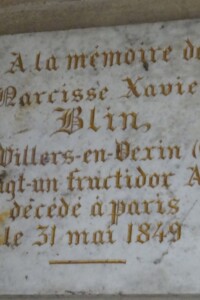 A la mémoire de
Narcisse Xavie
Blin,
Villers-en-Vexin (
gt-un fructidor A
décédé à paris
le 31 mai 1849